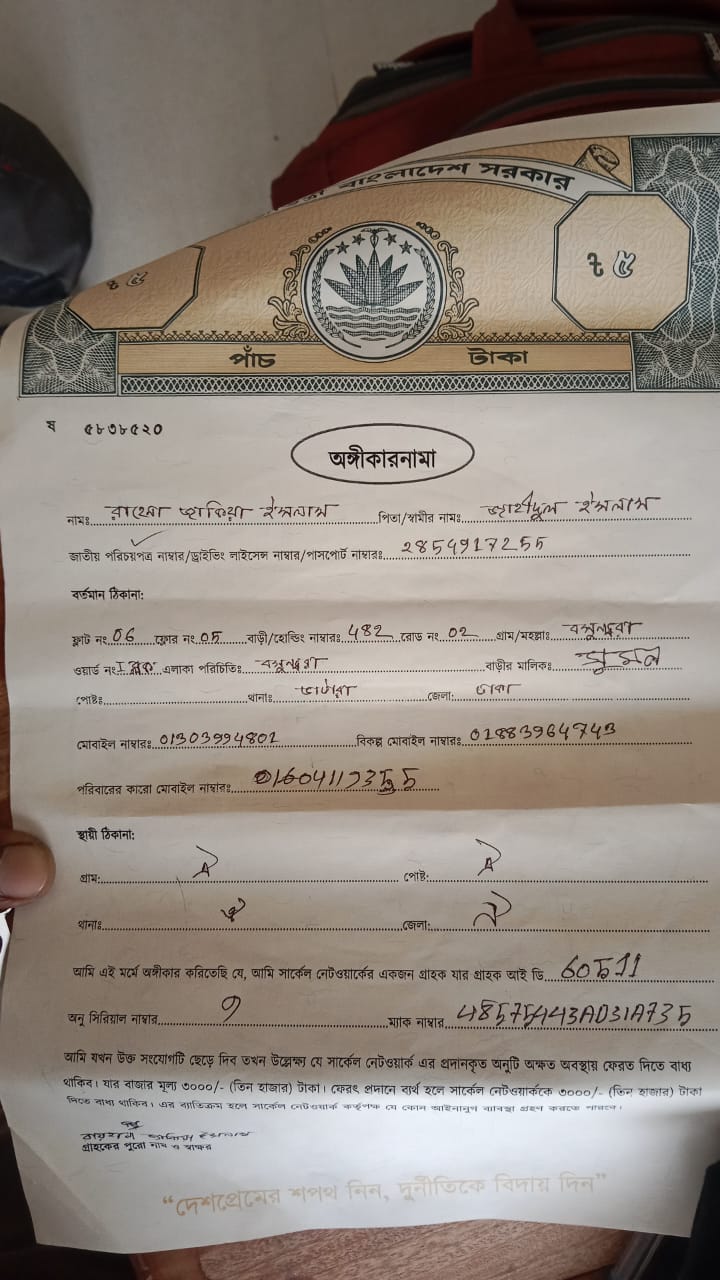 বাংলাদেশ সরকার
৳ ৫
৳ ৫
পাঁচ টাকা
ষ ৫৮৩৮৫২০
অঙ্গীকারনামা
নামঃ জাকিয়া ইসলাম পিতা/স্বামীর নামঃ জাহীদুল ইসলাম
জাতীয় পরিচয়পত্র নাম্বার/ড্রাইভিং লাইসেন্স নাম্বার/পাসপোর্ট নাম্বারঃ 2854917255
বর্তমান ঠিকানা:
ফ্লাট নং 06 ফ্লোর নং 05 বাড়ী/হোল্ডিং নাম্বারঃ 482 রোড নং 02 গ্রাম/মহল্লাঃ বসুন্ধরা
ওয়ার্ড নং I ব্লক এলাকা পরিচিতিঃ বসুন্ধরা বাড়ীর মালিকঃ সুমন
পোষ্টঃ থানাঃ ভাটারা জেলা: ঢাকা
মোবাইল নাম্বারঃ 01303994801 বিকল্প মোবাইল নাম্বারঃ 01883964743
পরিবারের কারো মোবাইল নাম্বারঃ
স্থায়ী ঠিকানা:
গ্রাম: ঐ পোষ্ট: ঐ
থানাঃ ঐ জেলা: ঐ
আমি এই মর্মে অঙ্গীকার করিতেছি যে, আমি সার্কেল নেটওয়ার্কের একজন গ্রাহক যার গ্রাহক আই ডি 60511
অনু সিরিয়াল নাম্বার ম্যাক নাম্বার 48575443AD31A735
আমি যখন উক্ত সংযোগটি ছেড়ে দিব তখন উল্লেক্ষ্য যে সার্কেল নেটওয়ার্ক এর প্রদানকৃত অনুটি অক্ষত অবস্থায় ফেরত দিতে বাধ্য
থাকিব। যার বাজার মূল্য ৩০০০/- (তিন হাজার) টাকা। ফেরৎ প্রদানে ব্যর্থ হলে সার্কেল নেটওয়ার্ককে ৩০০০/- (তিন হাজার) টাকা
দিতে বাধ্য থাকিব। এর ব্যতিক্রম হলে সার্কেল নেটওয়ার্ক কর্তৃপক্ষ যে কোন আইনানুগ ব্যবস্থা গ্রহণ করতে পারবে।
গ্রাহকের পুরো নাম ও স্বাক্ষর
“দেশপ্রেমের শপথ নিন, দুর্নীতিকে বিদায় দিন”